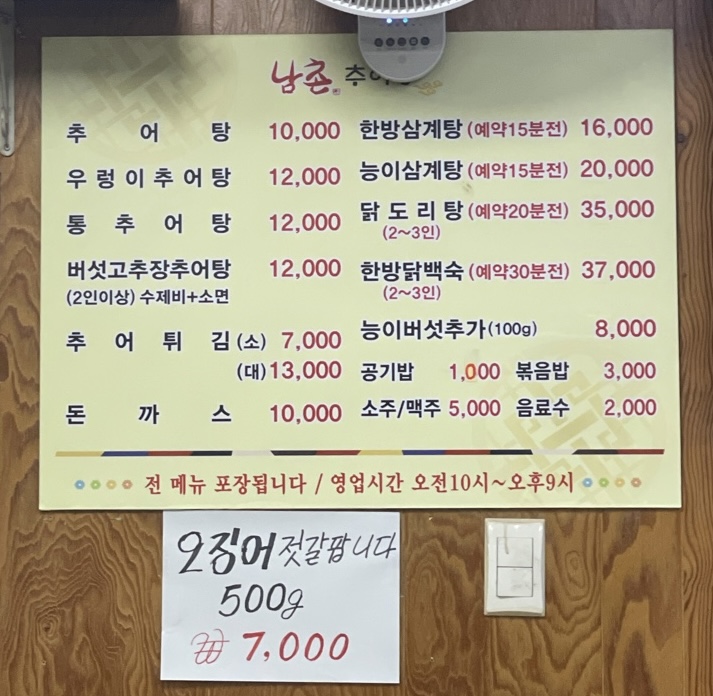 남촌 추어
추어탕 10,000
우렁이추어탕 12,000
통추어탕 12,000
버섯고추장추어탕 12,000
(2인이상) 수제비+소면
추어튀김 (소) 7,000
(대) 13,000
돈까스 10,000
한방삼계탕 (예약15분전) 16,000
능이삼계탕 (예약15분전) 20,000
닭도리탕 (예약20분전) 35,000
(2~3인)
한방닭백숙 (예약30분전) 37,000
(2~3인)
능이버섯추가 (100g) 8,000
공기밥 1,000 볶음밥 3,000
소주/맥주 5,000 음료수 2,000
전 메뉴 포장됩니다 / 영업시간 오전10시~오후9시
오징어 젓갈팝니다
500g
₩ 7,000